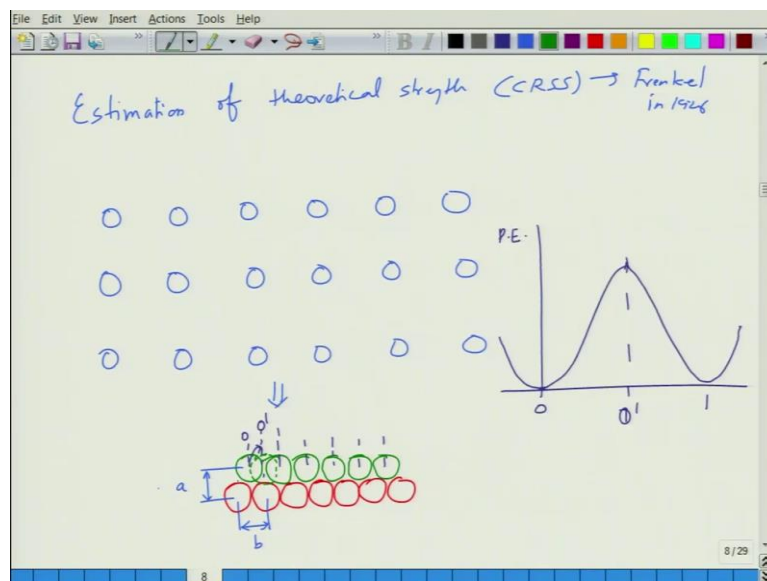 File Edit View Insert Actions Tools Help
B I
Estimation of theoretical strength (CRSS) → Frenkel
in 1926
P.E.
0 0' 1
0 0' 1
a
b
8/29
8